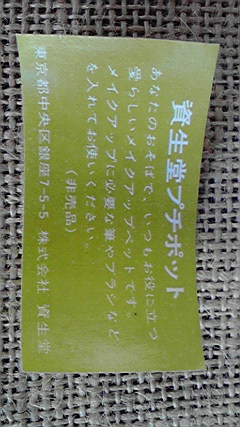 資生堂プチポット
あなたのおそばで、いつもお役に立つ
愛らしいメイクアップペットです。
メイクアップに必要な筆やブラシなど
を入れてお使いください。
(非売品)
東京都中央区銀座7-5-5 株式会社 資生堂